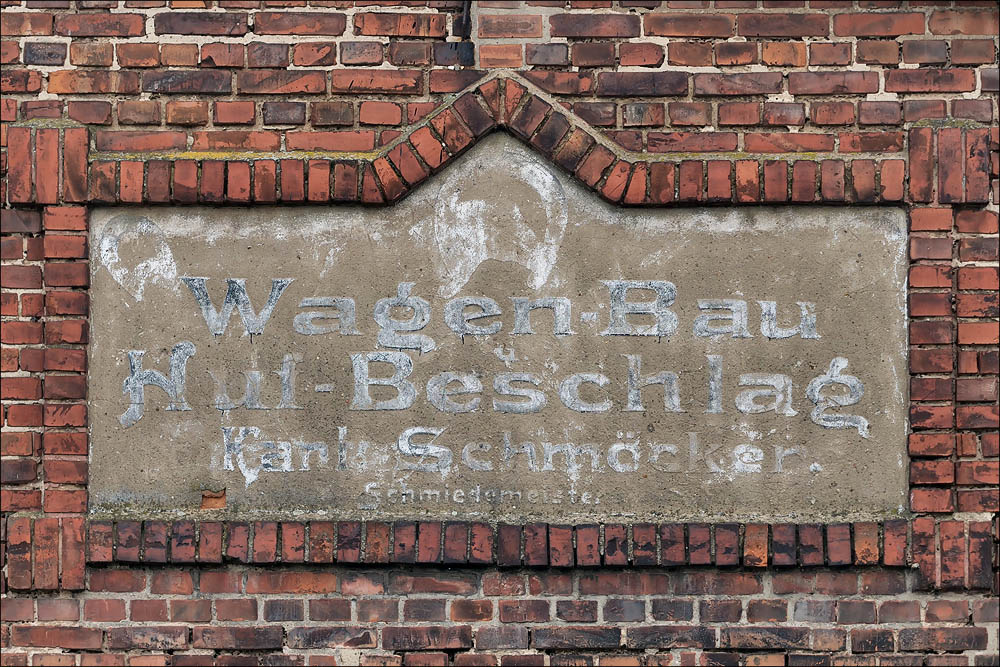 Wagen-Bau
u
Huf-Beschlag
Karl Schmöcker.
Schmiedemeister